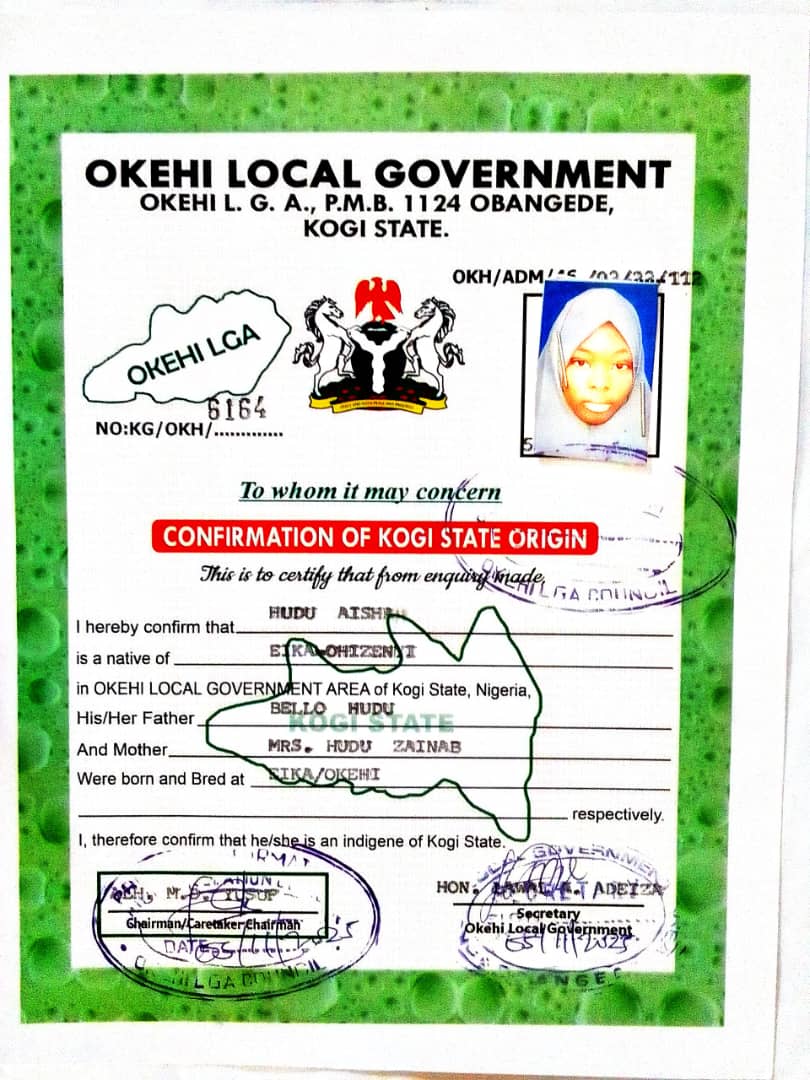 OKEHI LOCAL GOVERNMENT
OKEHI L. G. A., P.M.B. 1124 OBANGEDE,
KOGI STATE.
OKH/ADM/
OKEHI LGA
6164
NO:KG/OKH/.............
To whom it may concern
CONFIRMATION OF KOGI STATE ORIGIN
This is to certify that from enquiry made,
OKEHI LGA COUNCIL
I hereby confirm that HUDU AISHA
is a native of EIKA-OHIZENYI
in OKEHI LOCAL GOVERNMENT AREA of Kogi State, Nigeria,
His/Her Father BELLO HUDU
KOGI STATE
And Mother MRS. HUDU ZAINAB
Were born and Bred at EIKA/OKEHI
respectively.
I, therefore confirm that he/she is an indigene of Kogi State.
M.S. YUSUF
Chairman/Caretaker Chairman
DATE
LGA COUNCIL
HON. LAWAL ADEIZA
Secretary
Okehi Local Government